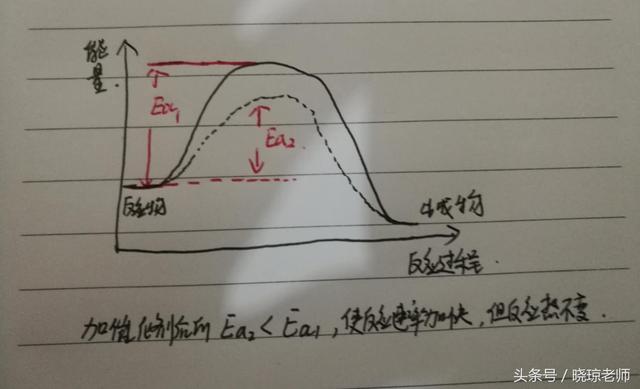 能
量
Ea₁
Ea₂
反应物
生成物
反应过程
加催化剂后的 Ea₂ < Ea₁, 使反应速率加快, 但反应热不变.
头条号 / 晓琼老师